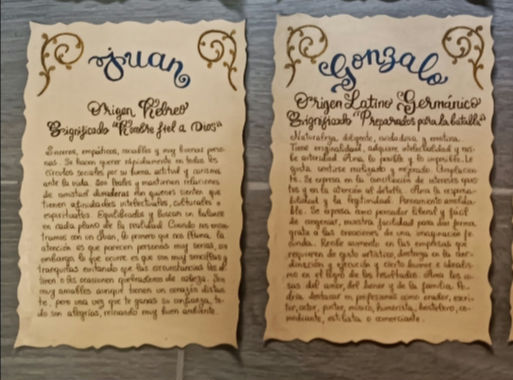 Juan
Origen Hebreo
Significado "Hombre fiel a Dios"
Sinceros, empáticos, sencillos y muy buenas perso-
nas. Se hacen querer rápidamente en todos los
círculos sociales por su buena actitud y carisma
ante la vida. Son fieles y mantienen relaciones
de amistad duraderas con quienes sienten que
tienen afinidades intelectuales, culturales o
espirituales. Equilibrados y buscan un balance
en cada plano de la realidad. Cuando nos encon-
tramos con un Juan, lo primero que nos llama la
atención es que parecen personas muy serias, sin
embargo lo que ocurre es que son muy sencillas y
tranquilas evitando que las circunstancias les al-
teren o les ocasionen quebraderos de cabeza. Son
muy amables aunque tienen un corazón distan-
te, pero una vez que te ganas su confianza, to-
do son alegrías, reinando muy buen ambiente.
Gonzalo
Origen Latino Germánico
Significado "Preparados para la batalla"
Naturaleza, diligente, cuidadosa y emotiva.
Tiene originalidad, adquiere intelectualidad y no-
ble autoridad. Ama lo posible y lo imposible. Le
gusta sentirse mitigado y mejorado.
Se expresa en la conciliación de intereses opues-
tos y en la atención al detalle. Ama la respon-
bilidad y la legitimidad. Pensamiento
ble. Se expresa como pensador liberal y fácil
de congeniar, muestra facilidad para dar forma,
grata a las creaciones de una imaginación fe-
cunda. Recibe aumento en las empresas que
requieren de gusto artístico, destreza en la coor-
dinación y ejecución y cierto humor e idealis-
mo en el logro de los resultados. Ama las co-
sas del amor, del honor y de la familia. Po-
dría destacar en profesiones como orador, escri-
tor, actor, pintor, músico, humorista, hostelero, co-
mediante, estilista o comerciante.